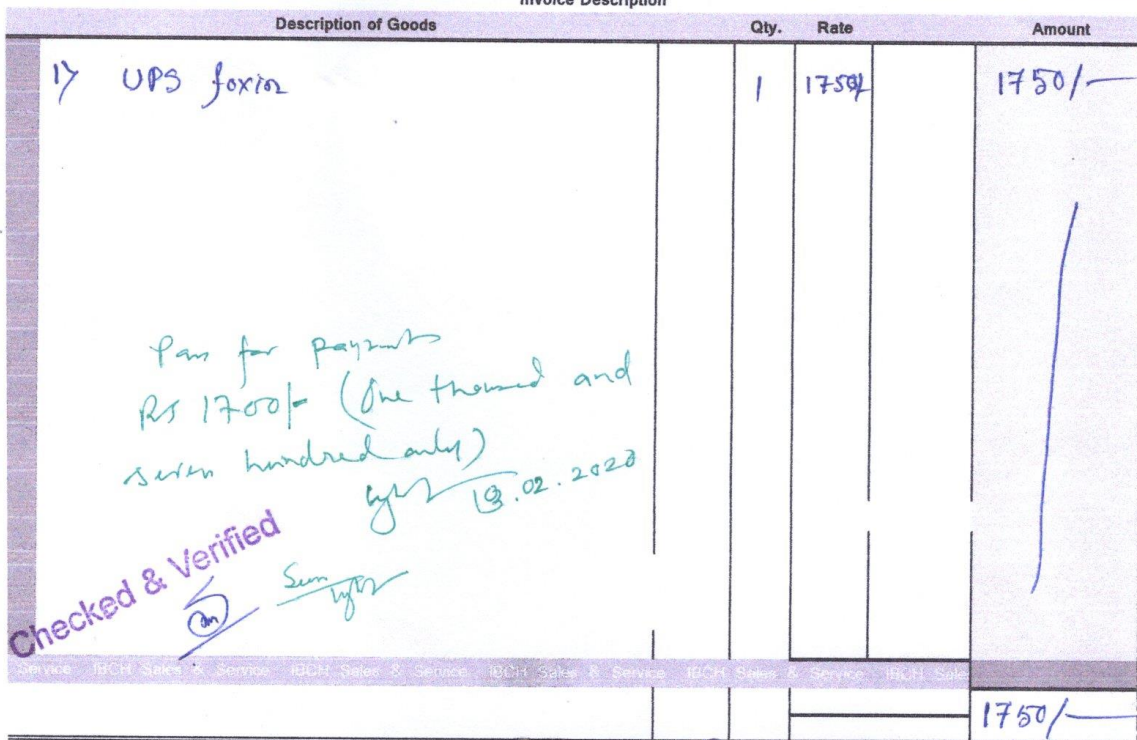 Invoice Description
Description of Goods Qty. Rate Amount
1) UPS 1 1750/- 1750/-
for payments
Rs 1700/- (One thousand and
seven hundred only)
.02.2020
Checked & Verified
Service IBCH Sales & Service IBCH Sales & Service IBCH Sales & Service IBCH Sales & Service IBCH Sale
1750/-